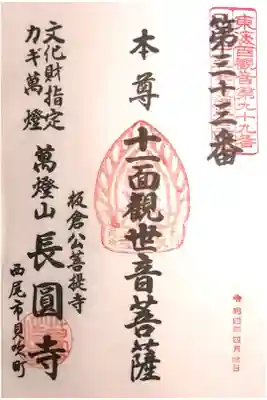 東海百觀音第九十九番
第三十三番
本尊 十一面觀世音菩薩
板倉公菩提寺
萬燈山 長圓寺
西尾市貝吹町
文化財指定
カギ萬燈